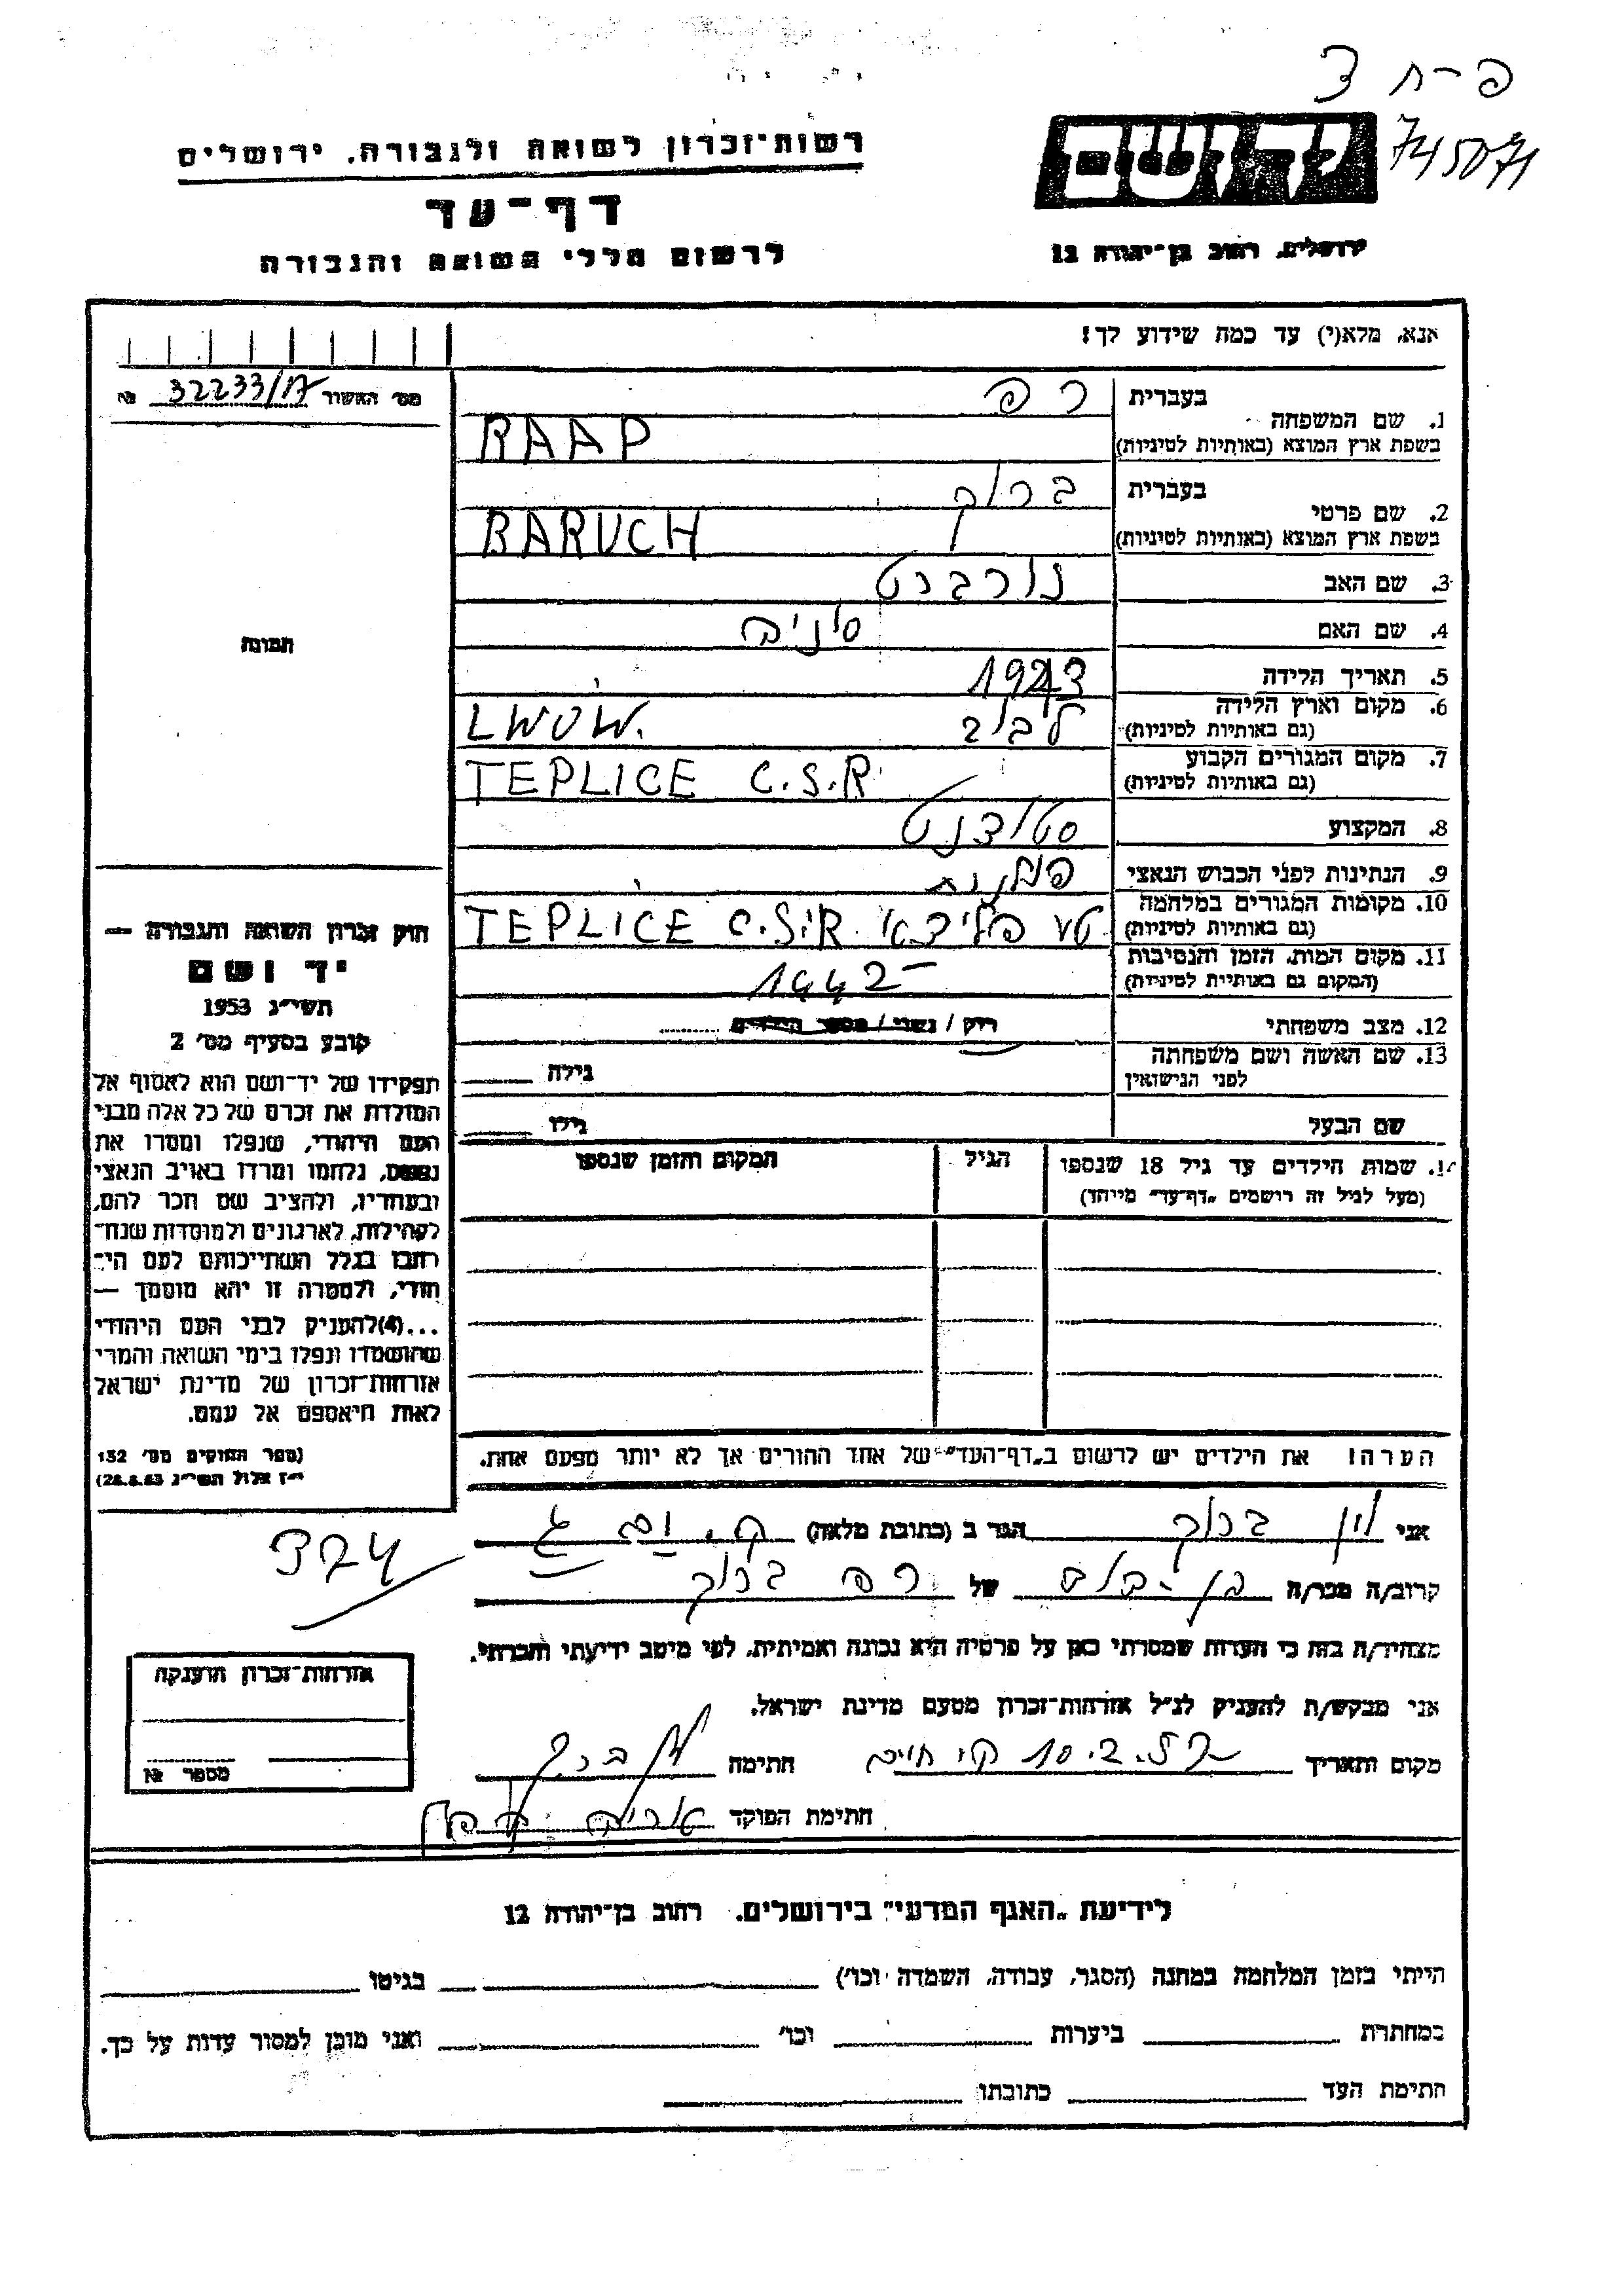 פ-ח ב
745071
יד ושם
ירושלים, רחוב בן־יהודה 12
רשות־זכרון לשואה ולגבורה, ירושלים
דף־עד
לרשום חללי השואה והגבורה
אנא, מלא(י) עד כמה שידוע לך!
מס׳ האשור 32233/17 №
בעברית רפ
1. שם המשפחה
בשפת ארץ המוצא (באותיות לטיניות) RAAP
בעברית ברוך
2. שם פרטי
בשפת ארץ המוצא (באותיות לטיניות) BARUCH
3. שם האב נורברט
4. שם האם
5. תאריך הלידה 1923
6. מקום וארץ הלידה
(גם באותיות לטיניות) לבוב LWOW.
7. מקום המגורים הקבוע
(גם באותיות לטיניות) TEPLICE C.S.R
8. המקצוע סטודנט
9. הנתינות לפני הכבוש הנאצי פולנית
10. מקומות המגורים במלחמה
(גם באותיות לטיניות) TEPLICE C.S.R.
11. מקום המות, הזמן והנסיבות
(המקום גם באותיות לטיניות) 1942
12. מצב משפחתי רוק / נשוי / מספר הילדים
13. שם האשה ושם משפחתה
לפני הנישואין
גילה
שם הבעל
גילו
14. שמות הילדים עד גיל 18 שנספו
(מעל לגיל זה רושמים „דף־עד״ מייוחד)
הגיל
המקום והזמן שנספו
הערה! את הילדים יש לרשום ב„דף־העד״ של אחד ההורים אך לא יותר מפעם אחת.
תמונה
חוק זכרון השואה והגבורה —
יד ושם
תשי״ג 1953
קובע בסעיף מס׳ 2
תפקידו של יד־ושם הוא לאסוף אל
המולדת את זכרם של כל אלה מבני
העם היהודי, שנפלו ומסרו את
נפשם, נלחמו ומרדו באויב הנאצי
ובעוזריו, ולהציב שם וזכר להם,
לקהילות, לארגונים ולמוסדות שנח־
רבו בגלל השתייכותם לעם הי־
הודי, ולמטרה זו יהא מוסמך —
...(4)להעניק לבני העם היהודי
שהושמדו ונפלו בימי השואה והמרי
אזרחות־זכרון של מדינת ישראל
לאות היאספם אל עמם.
(ספר החוקים מס׳ 132
י״ז אלול תשי״ג 28.8.53)
324
אני לוין ברוך הגר ב (כתובת מלאה) ק. ים
קרוב/ה מכר/ה של רפ ברוך
מצהיר/ה בזה כי העדות שמסרתי כאן על פרטיה היא נכונה ואמיתית, לפי מיטב ידיעתי והכרתי.
אני מבקש/ת להעניק לנ״ל אזרחות־זכרון מטעם מדינת ישראל.
מקום ותאריך קו חיים חתימה
חתימת הפוקד
אזרחות־זכרון הוענקה
מספר №
לידיעת „האגף המדעי״ בירושלים, רחוב בן־יהודה 12
הייתי בזמן המלחמה במחנה (הסגר, עבודה, השמדה וכו׳) בגיטו
במחתרת ביערות וכו׳ ואני מוכן למסור עדות על כך.
חתימת העד כתובתו